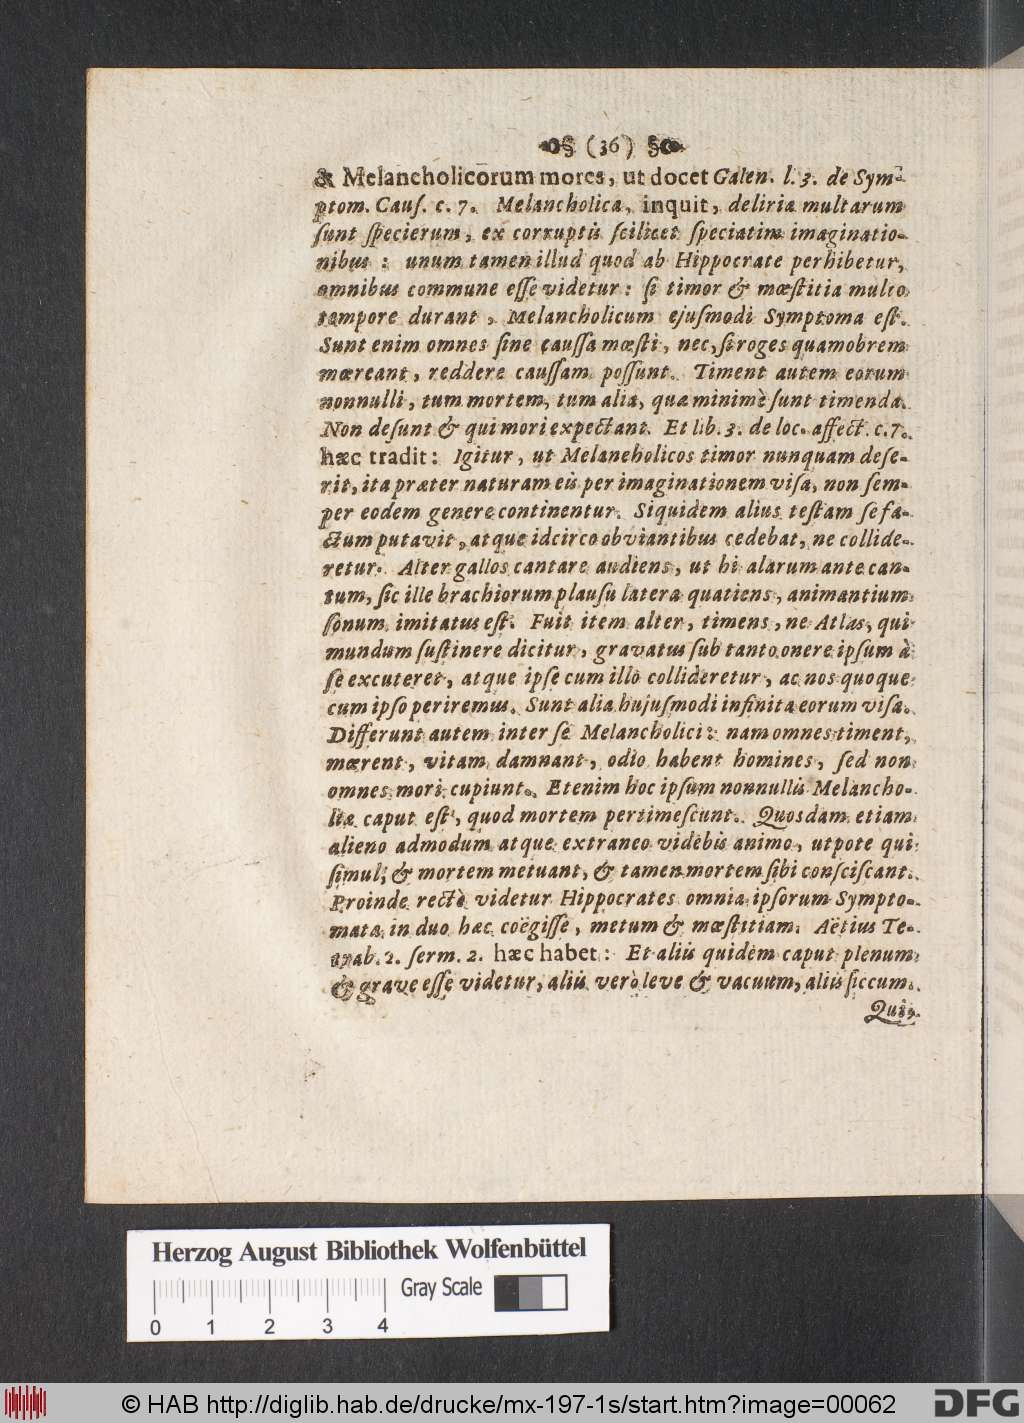 (36)
& Melancholicorum mores, ut docet Galen. l. 3. de Sym-
ptom. Cauſ. c. 7. Melancholica, inquit, deliria multarum
ſunt ſpecierum, ex corruptis ſcilicet ſpeciatim imaginatio-
nibus: unum tamen illud quod ab Hippocrate perhibetur,
omnibus commune eſſe videtur: ſi timor & mœſtitia multo
tempore durant, Melancholicum ejuſmodi Symptoma eſt.
Sunt enim omnes ſine cauſſa mœſti, nec, ſi roges quamobrem
mœreant, reddere cauſſam poſſunt. Timent autem eorum
nonnulli, tum mortem, tum alia, quæ minimè ſunt timenda.
Non deſunt & qui mori expectant. Et lib. 3. de loc. affect. c. 7.
hæc tradit: Igitur, ut Melaneholicos timor nunquam deſe-
rit, ita præter naturam eis per imaginationem viſa, non ſem-
per eodem genere continentur. Siquidem alius teſtam ſe fa-
ctum putavit, atque idcirco obviantibus cedebat, ne collide-
retur. Alter gallos cantare audiens, ut hi alarum ante can-
tum, ſic ille brachiorum plauſu latera quatiens, animantium
ſonum imitatus eſt. Fuit item alter, timens, ne Atlas, qui
mundum ſuſtinere dicitur, gravatus ſub tanto onere ipſum à
ſe excuteret, atque ipſe cum illo collideretur, ac nos quoque
cum ipſo periremus. Sunt alia hujuſmodi infinita eorum viſa.
Differunt autem inter ſe Melancholici: nam omnes timent,
mœrent, vitam damnant, odio habent homines, ſed non
omnes mori cupiunt. Etenim hoc ipſum nonnullis Melancho-
liæ caput eſt, quod mortem pertimeſcunt. Quosdam etiam
alieno admodum atque extraneo videbis animo, utpote qui
ſimul, & mortem metuant, & tamen mortem ſibi conſciſcant.
Proinde rectè videtur Hippocrates omnia ipſorum Sympto-
mata in duo hæc coëgiſſe, metum & mœſtitiam. Aëtius Te-
trab. 2. ſerm. 2. hæc habet: Et aliis quidem caput plenum
& grave eſſe videtur, aliis verò leve & vacuum, aliis ſiccum.
Herzog August Bibliothek Wolfenbüttel
Gray Scale
0 1 2 3 4
© HAB http://diglib.hab.de/drucke/mx-197-1s/start.htm?image=00062
DFG